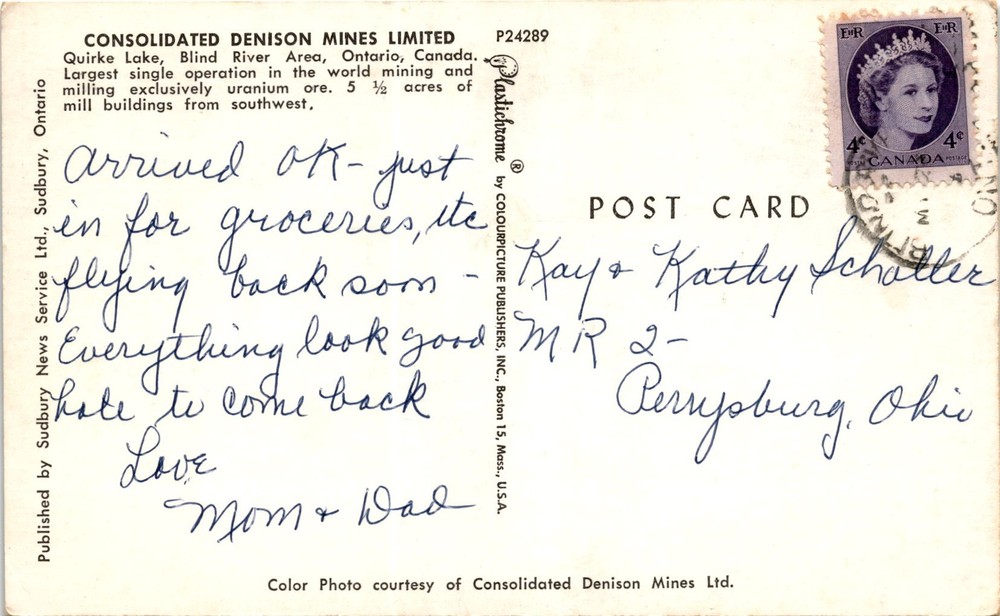 CONSOLIDATED DENISON MINES LIMITED
Quirke Lake, Blind River Area, Ontario, Canada.
Largest single operation in the world mining and
milling exclusively uranium ore. 5 ½ acres of
mill buildings from southwest.
Published by Sudbury News Service Ltd., Sudbury, Ontario
Arrived OK - just
in for groceries, etc
flying back soon -
Everything look good
hate to come back
Love
Mom + Dad
P24289
Plastichrome ® by COLOURPICTURE PUBLISHERS, INC., Boston 15, Mass., U.S.A.
EIIR EIIR
4¢ 4¢
CANADA
POSTAGE
POST CARD
Kay + Kathy Schaller
MR 2-
Perrysburg, Ohio
Color Photo courtesy of Consolidated Denison Mines Ltd.